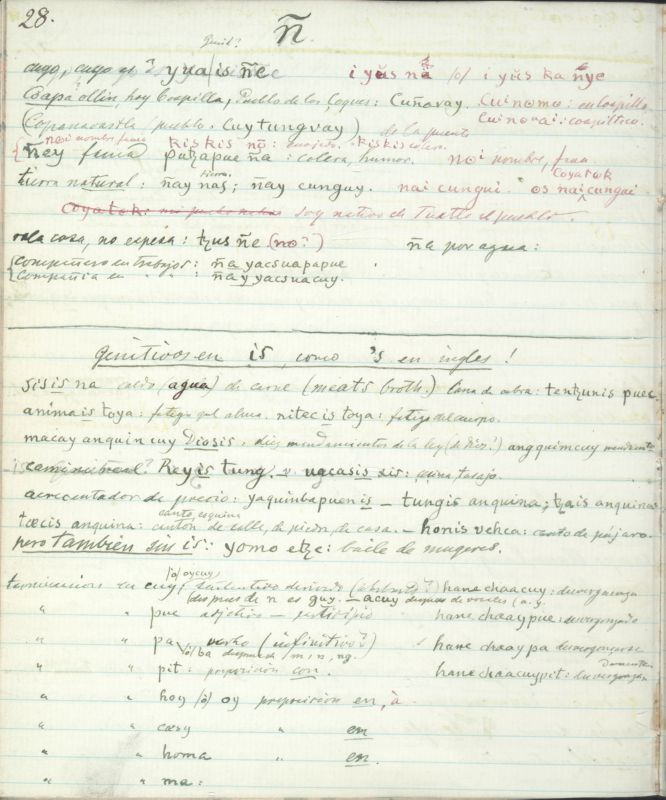 28.
ñ.
cuyo, cuyo es? yyais ñee i yŭs /o/ i yŭs ka ñye
Coapa ollin, hoy Coapilla, Pueblo de los Zoques: Cuñavay. Cuinomo: en Coapilla
(Copanavastla pueblo. Cuytungvay) Cuinovai: coapilteco.
noi nombre, fama kiskis no: enojado. kiskis colera.
ñey fama putzapue ña: colera, humor. noi nombre, fama
Coyatok
tierra natural: ñay nas; ñay cunguy. nai cungui. os nai cungui
Coyatok: soy nativo de Tuxtla el pueblo.
rala cosa, no espesa: tzus ñe (no?) ña por agua:
compeñero en trabajos: ña yacsuapapue
compañia en " " : ñay yacsuacuy.
genitivos en is, como 's en ingles!
sisis na caldo (agua) de carne (meats broth.) Lana de cabra: tentzunis puec
animais toya: fatiga del alma. nitecis toya: fatiga del cuerpo.
macay anquin cuy Diosis, diez mandamientos de la ley (de Dios?) angquimcuy
camino real? Reyis tung. v. ugcasis sis: tasajo.
acrecentador de precio: yaquinbapuenis – tungis anquina; tzais anquina
canto, esquina
tæcis anquina: canton de calle, de piedra, de casa. – honis vehca: canto de pájaro.
pero tambien sin is: yomo etze: baile de mugeres.
/o/ oycuy
terminacion en cuy, sustantivo (abstracto?) hane chaacuy: desvergüenza
despues de n es guy. – acuy despues de vocales (a. y.
" " pue adjetivo – participio hane chaaypue: desvergonzado
" " pa verbo (infinitivo?) hane chaaypa desvergonzarse
/o/ ba despues de m, n, ng.
" " pit: preposicion con. hane chaacuypit:
" " hoy /o/ oy preposicion en, à
" " cæsy " en
" " homa " en.
" " ma: